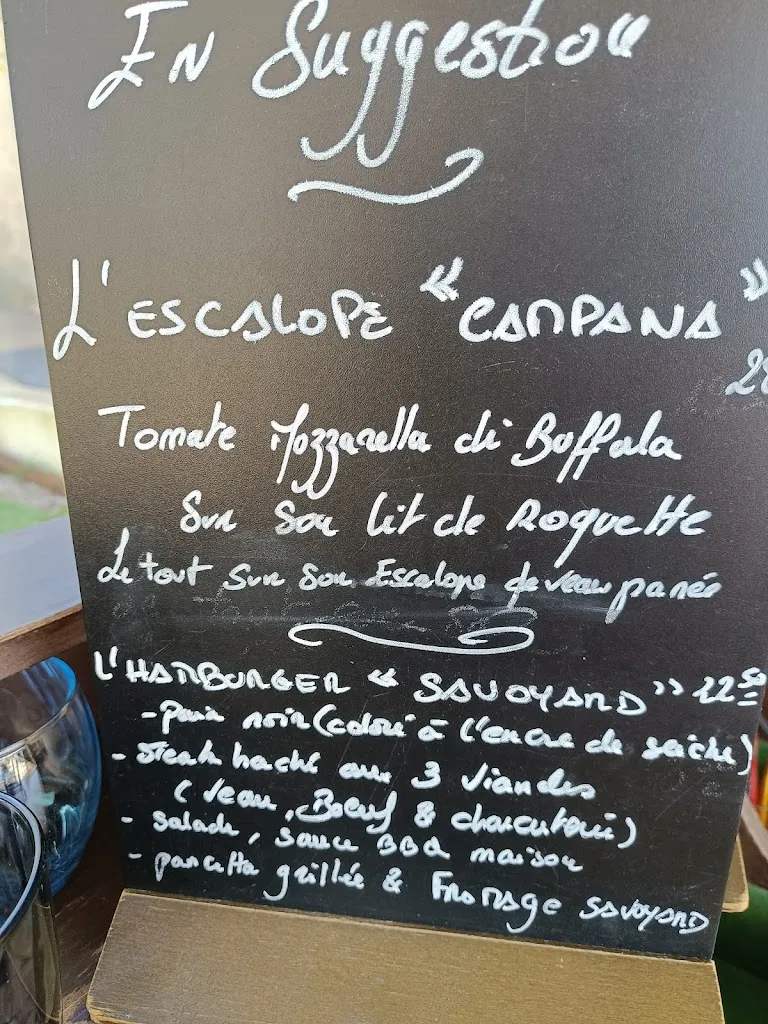 En Suggestion
L'ESCALOPE "CAMPANA"
Tomate Mozzarella di Buffala
Sur son lit de Roquette
Le tout sur son Escalope de veau panée
L'HAMBURGER " SAVOYARD"
- pain noir (coloré à l'encre de seiche)
- steak haché aux 3 viandes
( Veau, Boeuf & charcuterie)
- salade, sauce BBQ maison
- pancetta grillée & FROMAGE SAVOYARD